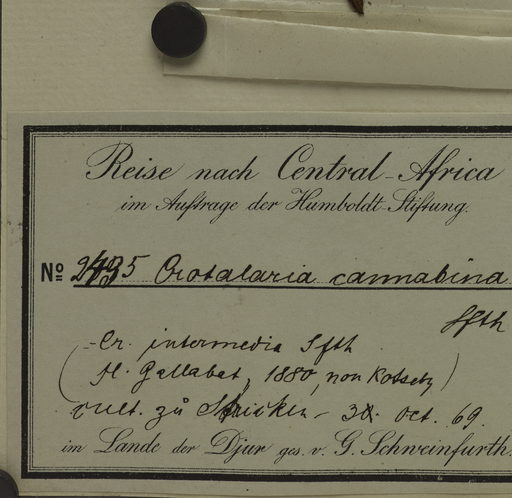 Reise nach Central-Africa
im Auftrage der Humboldt-Stiftung.
No 2435 Crotalaria cannabina
Sfth
(= Cr. intermedia Sfth
Fl. Gallabat, 1880, non Kotschy)
cult. zu Stricken - 30. Oct. 69.
im Lande der Djur ges. v. G. Schweinfurth.